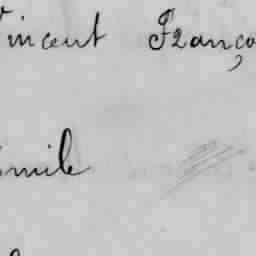 Vincent Franço
Emile